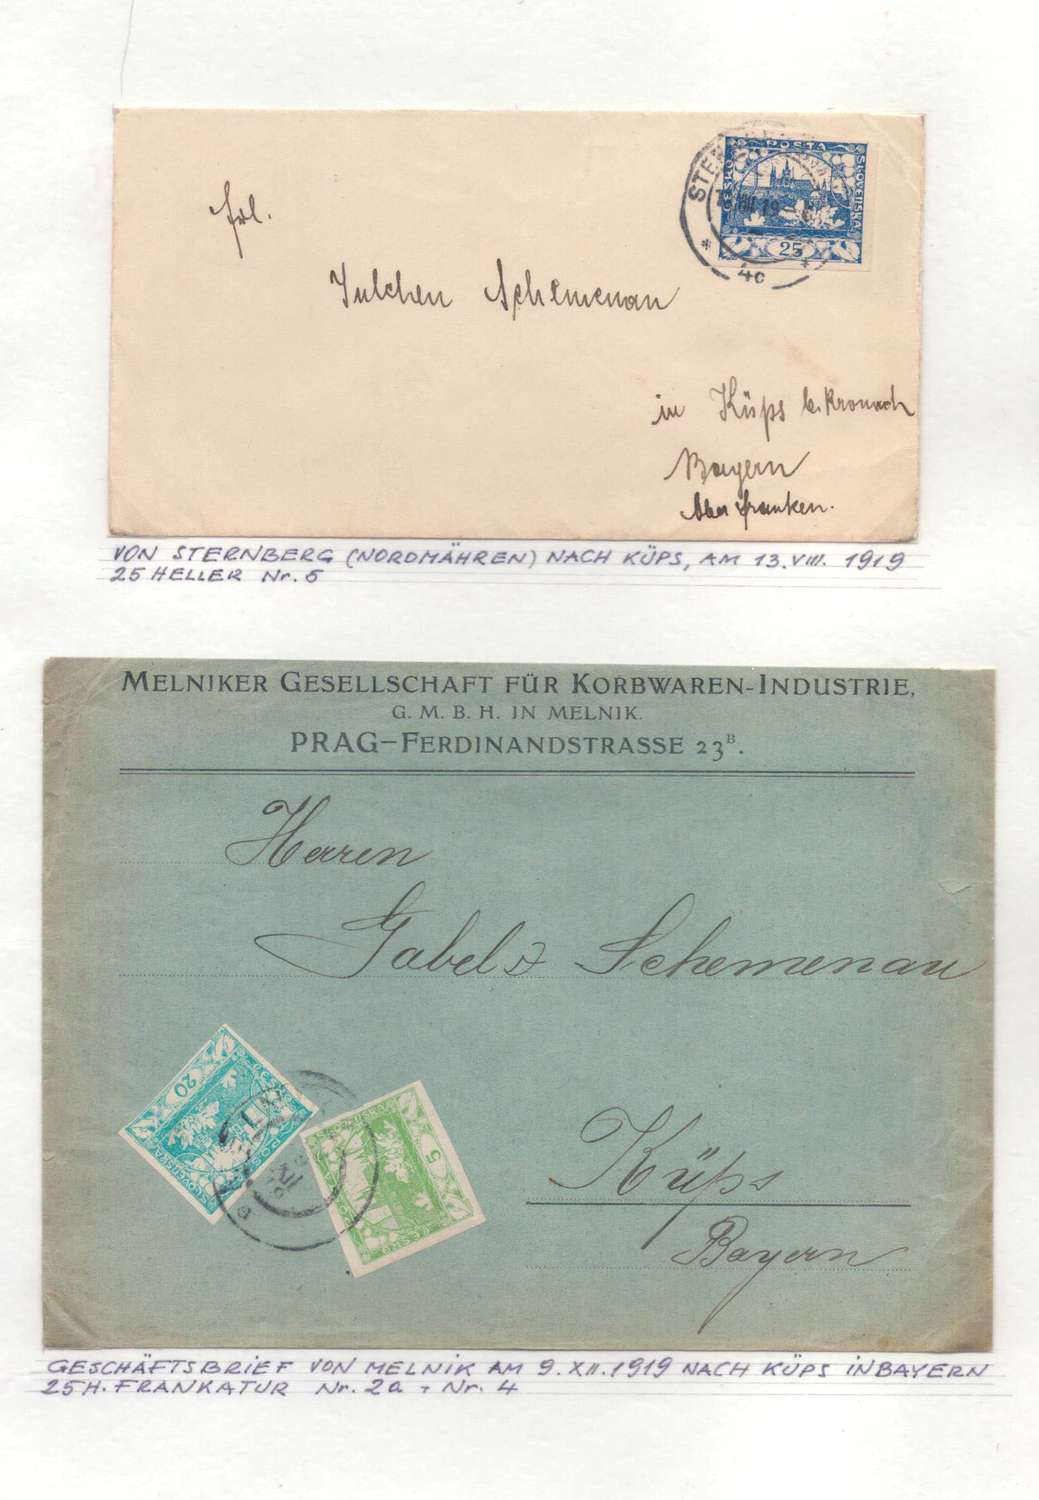 Frl.
Julchen Schemenau
in Küps b. Kronach
Bayern
Ober franken.
POSTA
ČESKO SLOVENSKÁ
25
4c
VON STERNBERG (NORDMÄHREN) NACH KÜPS, AM 13. VIII. 1919
25 HELLER Nr. 5
MELNIKER GESELLSCHAFT FÜR KORBWAREN-INDUSTRIE,
G. M. B. H. IN MELNIK.
PRAG–FERDINANDSTRASSE 23B.
Herren
Gabel & Schemenau
20
5
Küps
Bayern
GESCHÄFTSBRIEF VON MELNIK AM 9. XII. 1919 NACH KÜPS IN BAYERN
25 H. FRANKATUR Nr. 2a + Nr. 4